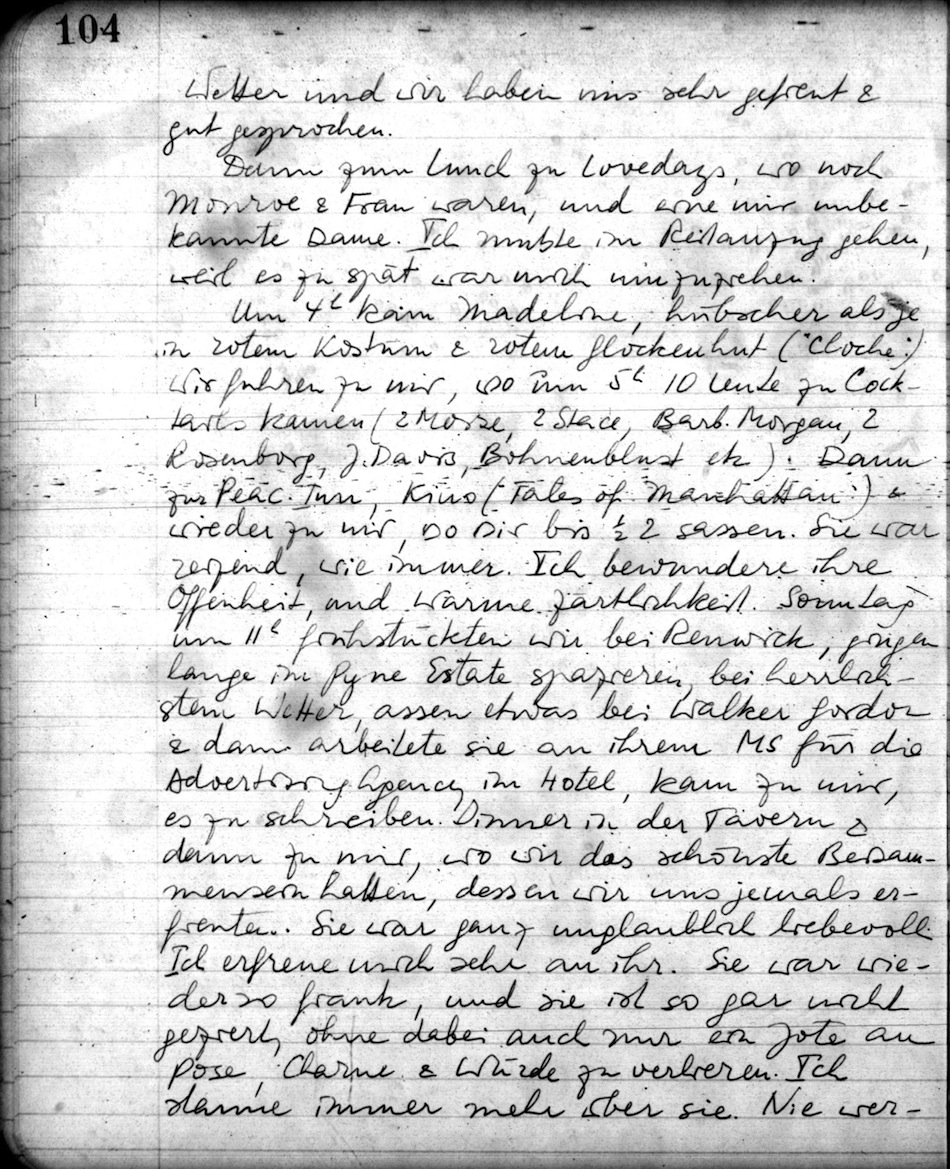 104
Wetter und wir haben uns sehr gefreut &
gut gesprochen.
Dann zum Lunch zu Lovedays, wo noch
Monroe & Frau waren, und eine mir unbe-
kannte Dame. Ich mußte im Reitanzug gehen,
weil es zu spät war mich umzuziehen.
Um 4h kam Madeline, hübscher als je
in rotem Kostüm & rotem Glockenhut ("Cloche".)
Wir fuhren zu mir, wo um 5h 10 Leute zu Cock-
tails kamen (2 Morse, 2 Stace, Barb. Morgan, 2
Rosenborg, J. Davis, Bohnenblust etc). Dann
zur Peac. Inn, Kino ("Tales of Manhattan") &
wieder zu mir, wo wir bis ½ 2 sassen. Sie war
reizend, wie immer. Ich bewundere ihre
Offenheit, und warme Zärtlichkeit. Sonntag
um 11h frühstückten wir bei Renwick, gingen
lange im Pyne Estate spazieren, bei herrlich-
stem Wetter, assen etwas bei Walker Gordon
& dann arbeitete sie an ihrem MS für die
Advertising Agency im Hotel, kam zu mir,
es zu schreiben. Dinner in der Tavern &
dann zu mir, wo wir das schönste Beisam-
mensein hatten, dessen wir uns jemals er-
freuten. Sie war ganz unglaublich liebevoll.
Ich erfreue mich sehr an ihr. Sie war wie-
der so frank, und sie ist so gar nicht
geziert, ohne dabei auch nur ein Jota an
Pose, Charme & Würde zu verlieren. Ich
staune immer mehr über sie. Nie wer-